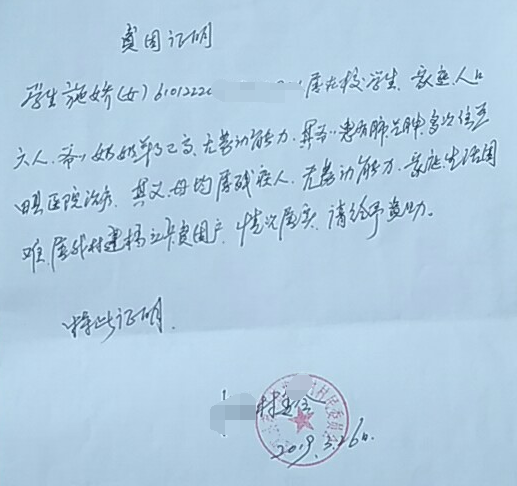 贫困证明
学生施娇(女)6101222 属在校学生、家庭人口
六人、爷、奶奶年令已高、无劳动能力、其爷患有肺气肿、多次住蓝
田县医院治疗、其父、母均属残疾人、无劳动能力、家庭生活困
难、属我村建档立卡贫困户、情况属实、请给予资助。
特此证明.
村委会
村民委员会
2019.3.26日